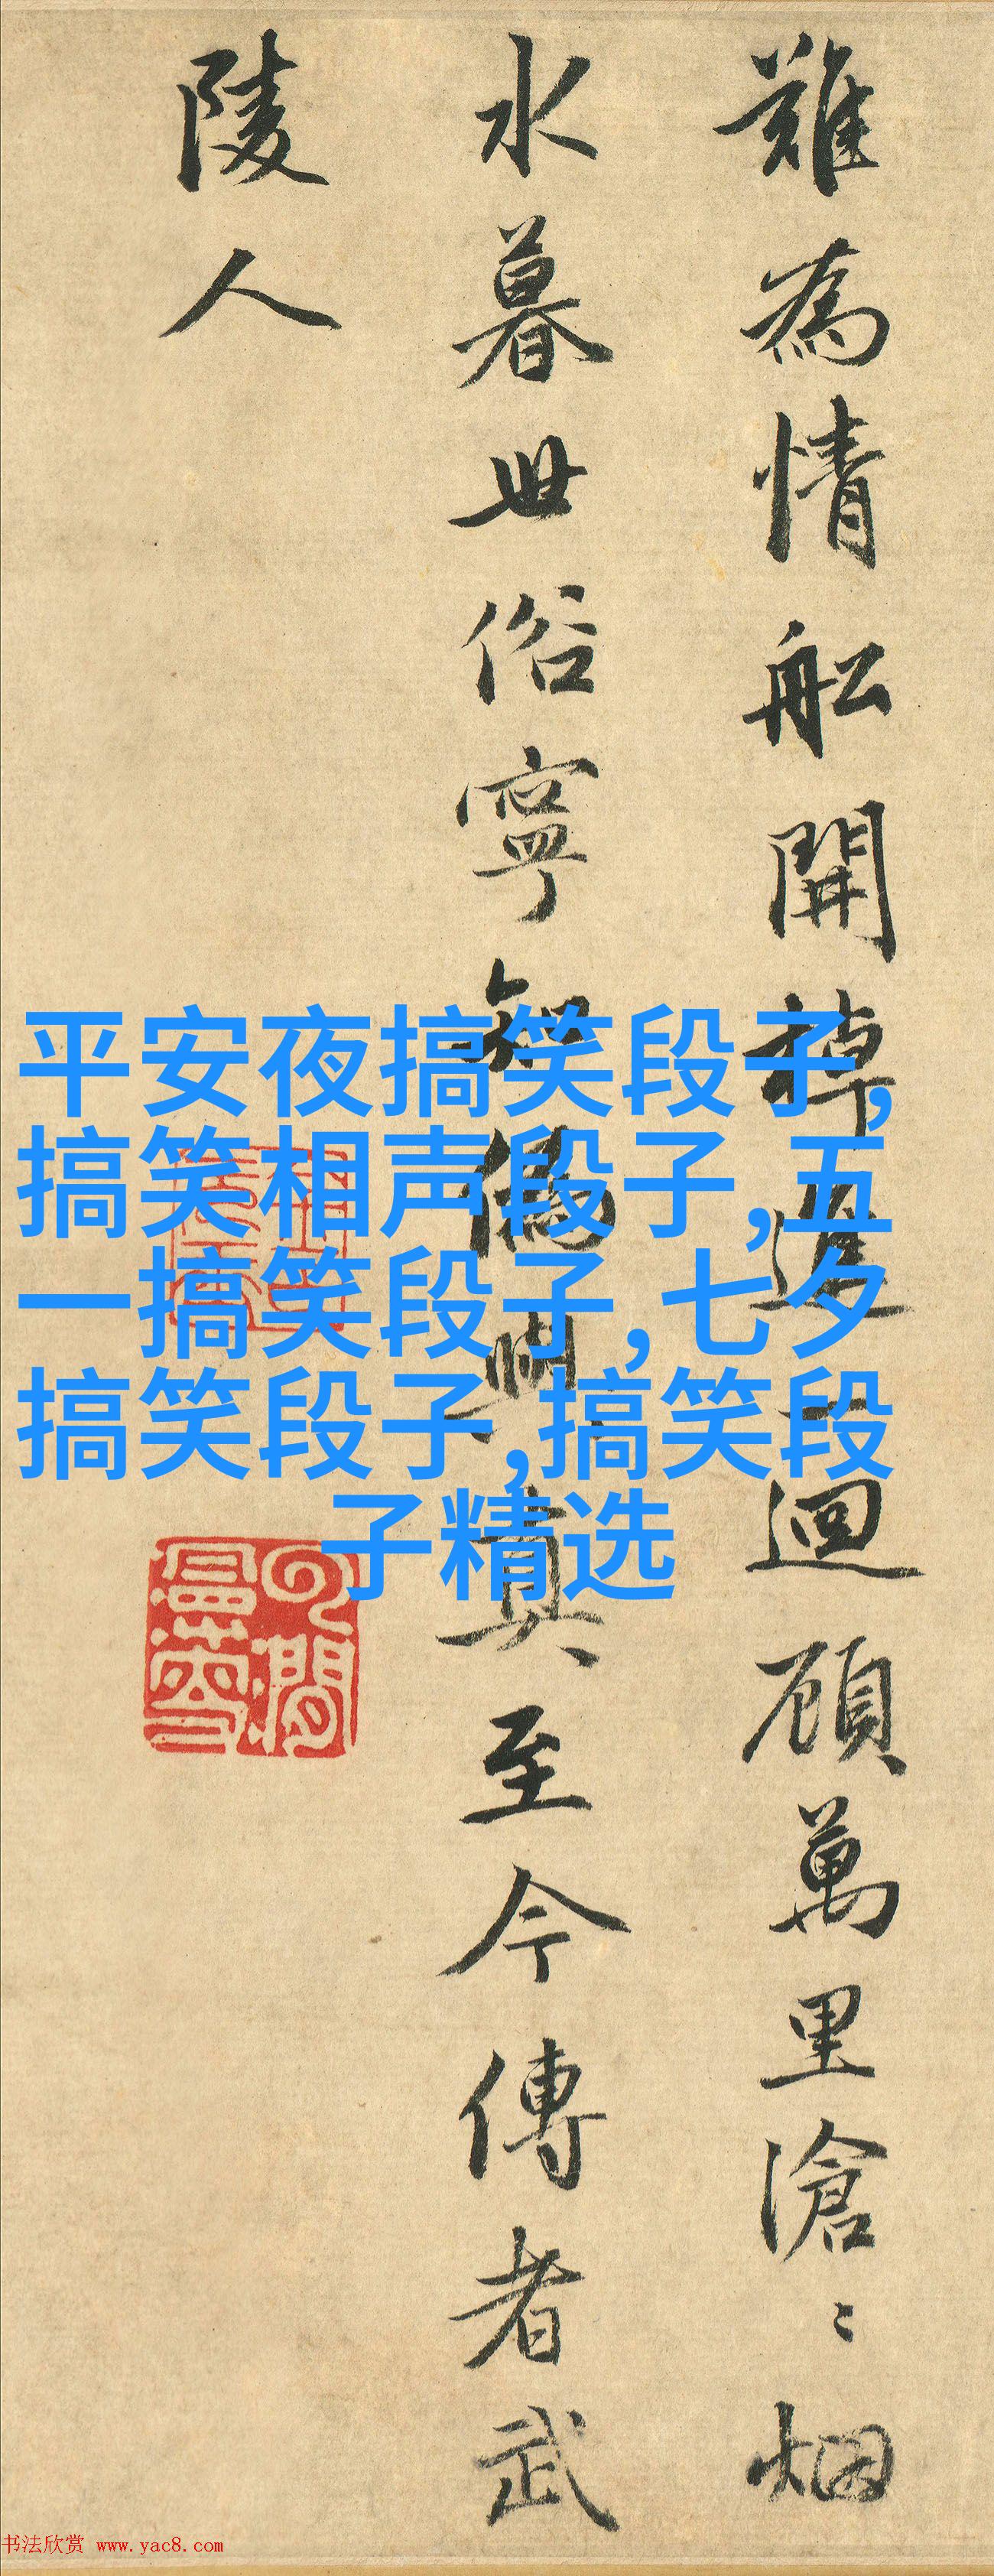 難為情船開棹進一迴顧萬里滄〻烟
水暮世俗寧知偽與真至今傳者武
陵人
平安夜搞笑段子,
搞笑相声段子,五
一搞笑段子,七夕
搞笑段子,搞笑段
子精选
书法欣赏 www.yac8.com